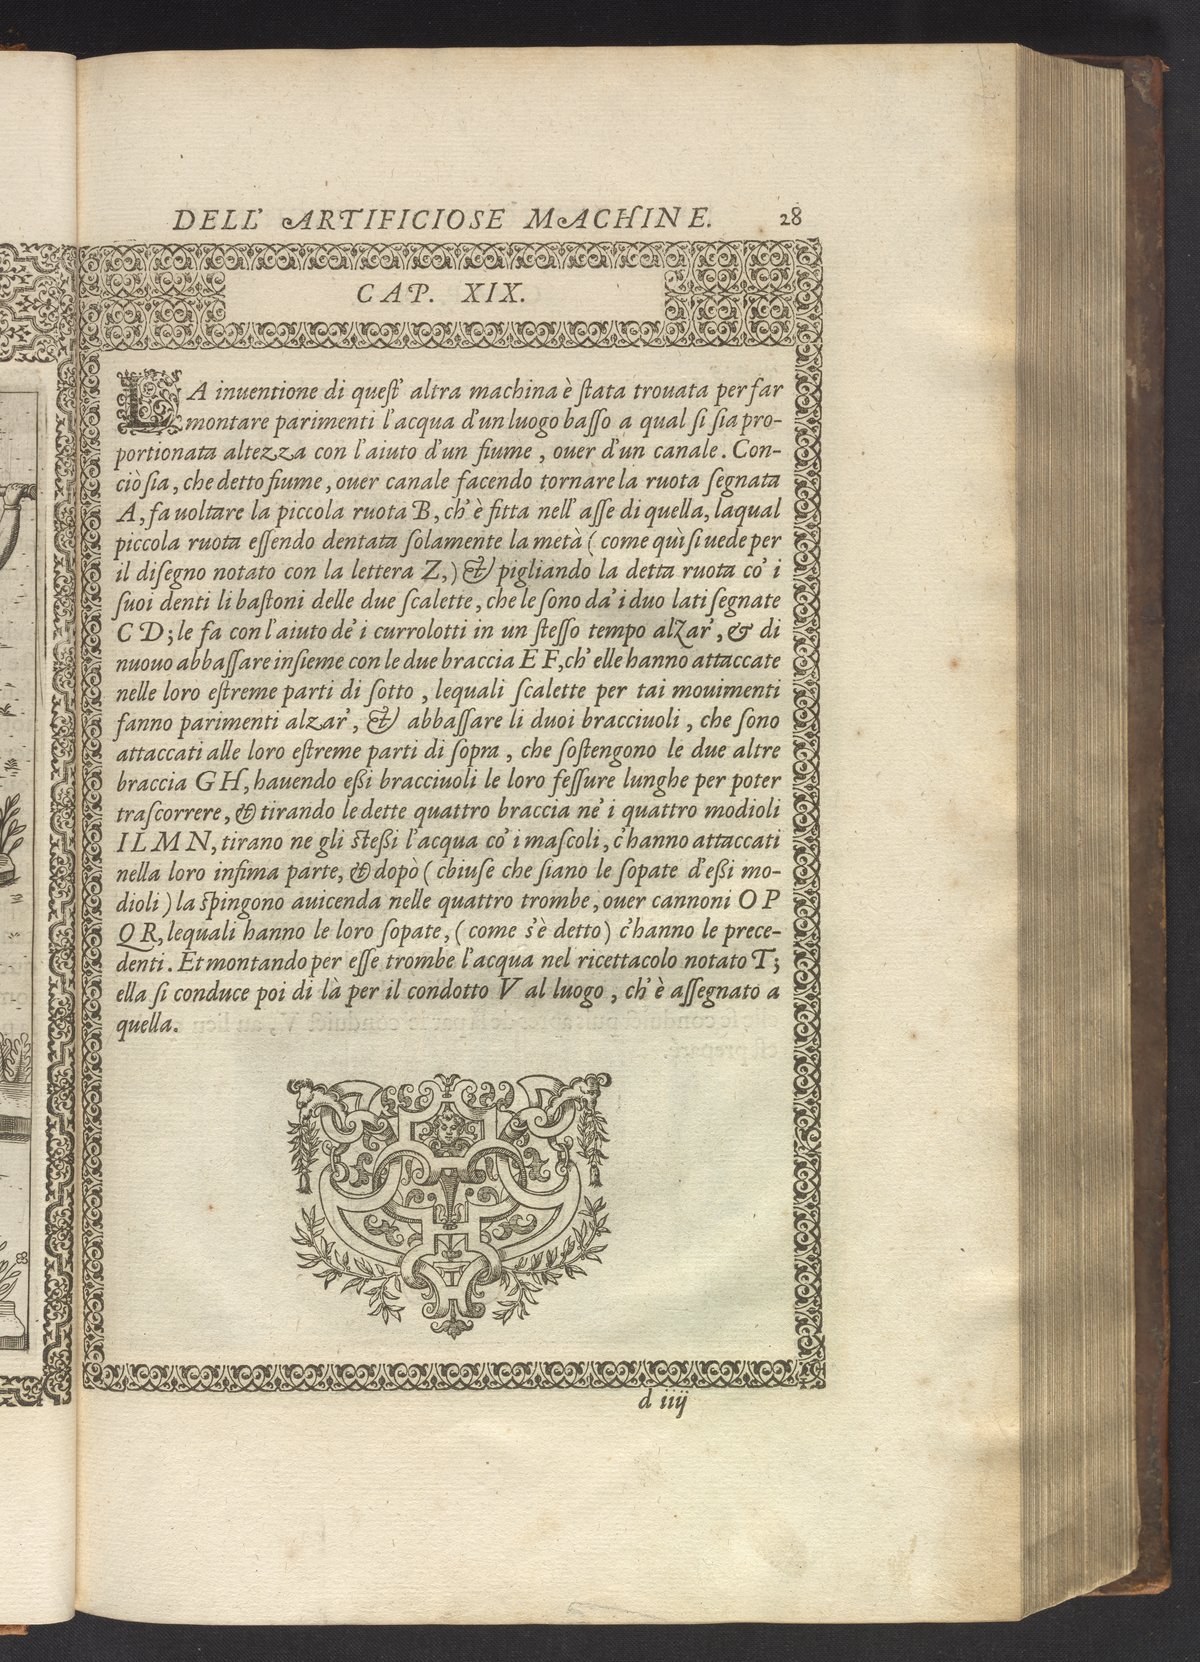 DELL' ARTIFICIOSE MACHINE. 28
CAP. XIX.
LA inuentione di quest' altra machina è stata trouata per far
montare parimenti l'acqua d'un luogo basso a qual si sia pro-
portionata altezza con l'aiuto d'un fiume, ouer d'un canale. Con-
ciò sia, che detto fiume, ouer canale facendo tornare la ruota segnata
A, fa uoltare la piccola ruota B, ch'è fitta nell' asse di quella, laqual
piccola ruota essendo dentata solamente la metà (come quì si uede per
il disegno notato con la lettera Z,) & pigliando la detta ruota co' i
suoi denti li bastoni delle due scalette, che le sono da' i duo lati segnate
C D; le fa con l'aiuto de' i currolotti in un stesso tempo alzar', & di
nuouo abbassare insieme con le due braccia E F, ch' elle hanno attaccate
nelle loro estreme parti di sotto, lequali scalette per tai mouimenti
fanno parimenti alzar', & abbassare li duoi bracciuoli, che sono
attaccati alle loro estreme parti di sopra, che sostengono le due altre
braccia G H, hauendo eßi bracciuoli le loro fessure lunghe per poter
trascorrere, & tirando le dette quattro braccia ne' i quattro modioli
I L M N, tirano ne gli steßi l'acqua co' i mascoli, c'hanno attaccati
nella loro infima parte, & dopò (chiuse che siano le sopate d'eßi mo-
dioli) la spingono auicenda nelle quattro trombe, ouer cannoni O P
Q R, lequali hanno le loro sopate, (come s'è detto) c'hanno le prece-
denti. Et montando per esse trombe l'acqua nel ricettacolo notato T;
ella si conduce poi di là per il condotto V al luogo, ch' è assegnato a
quella.
d iiij